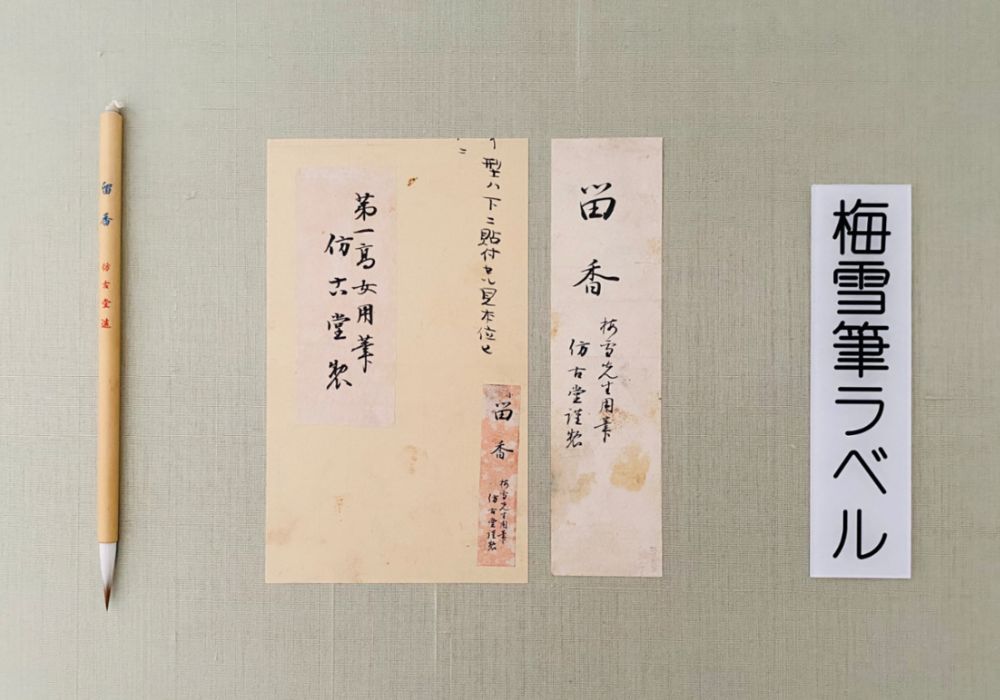 畄香
仿古堂造
第一高女用筆
仿古堂製
型ハ下ニ貼付セル見本位
畄香
梅雪先生用筆
仿古堂謹製
畄香
梅雪先生用筆
仿古堂謹製
梅雪筆ラベル